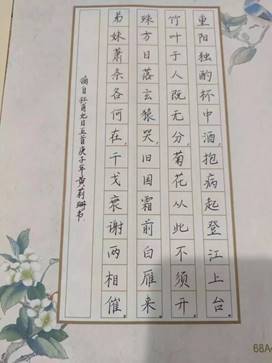 重阳独酌杯中酒抱病起登江上台
竹叶于人既无分菊花从此不须开
殊方日落玄猿哭旧国霜前白雁来
弟妹萧条各何在干戈衰谢两相催
摘自杜甫九日五首庚子年黄莉珊书